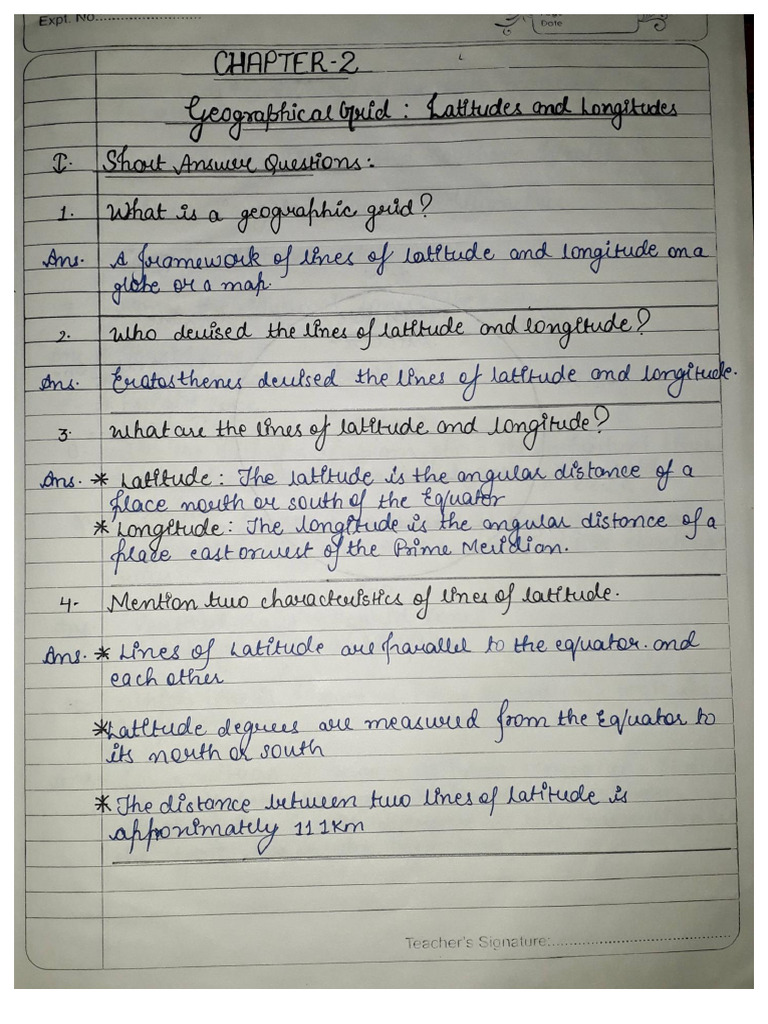 Expt. No.
Date
CHAPTER-2
Geographical Grid : Latitudes and Longitudes
I. Short Answer Questions:
1. What is a geographic grid?
Ans. A framework of lines of latitude and longitude on a
globe or a map.
2. Who devised the lines of latitude and longitude?
Ans. Eratosthenes devised the lines of latitude and longitude.
3. What are the lines of latitude and longitude?
Ans. * Latitude : The latitude is the angular distance of a
place north or south of the Equator
* Longitude : The longitude is the angular distance of a
place east or west of the Prime Meridian.
4. Mention two characteristics of lines of latitude.
Ans. * Lines of Latitude are parallel to the equator. and
each other
* Latitude degrees are measured from the Equator to
its north or south
* The distance between two lines of latitude is
approximately 111km
Teacher's Signature: